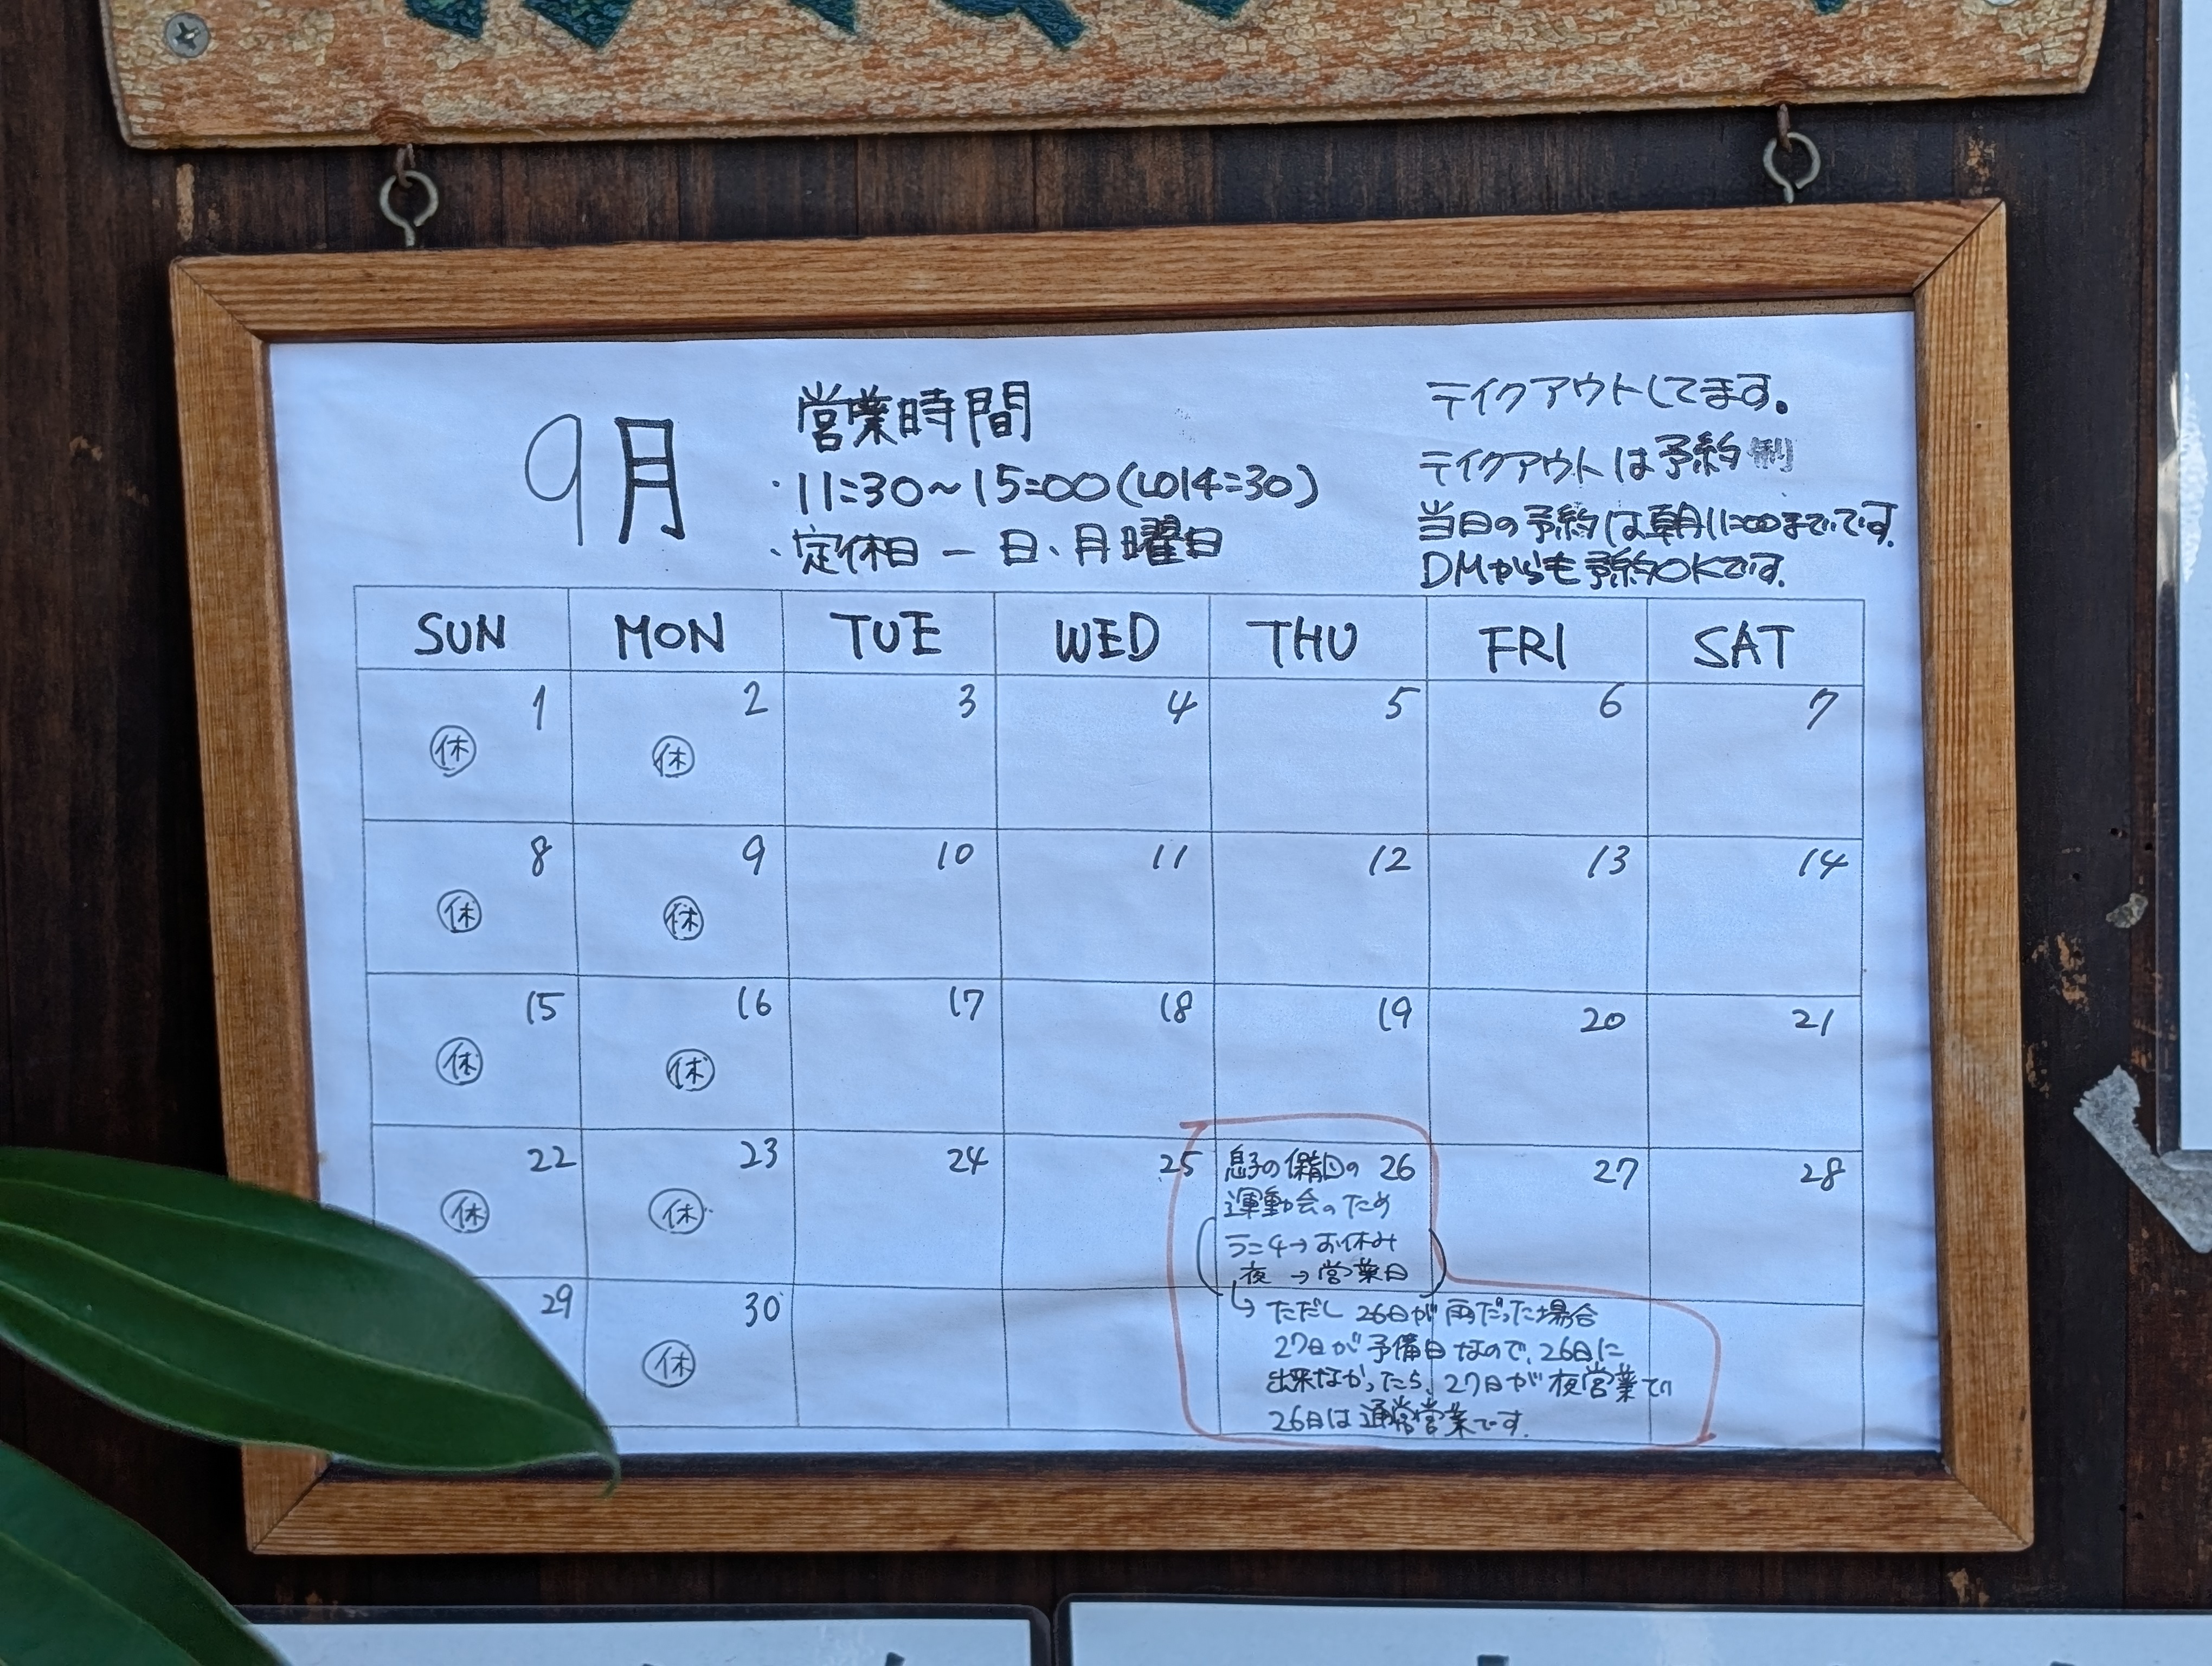 9月
営業時間
・11:30~15:00(LO14:30)
・定休日 ー 日、月曜日
テイクアウトしてます。
テイクアウトは予約制
当日の予約は朝11:00までです。
DMからも予約OKです。
SUN MON TUE WED THU FRI SAT
1 2 3 4 5 6 7
休 休
8 9 10 11 12 13 14
休 休
15 16 17 18 19 20 21
休 休
22 23 24 25 26 27 28
休 休
息子の保育園の
運動会のため
ランチ→お休み
夜 →営業日
29 30
休
↳ ただし 26日が雨だった場合
27日が予備日なので、26日に
出来なかったら、27日が夜営業で
26日は通常営業です。